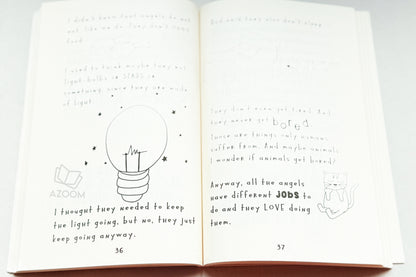 I didn't know that angels do not
eat like we do. They don't need
food.
I used to think maybe they ate
light bulbs or STARS or
something since they are made
of light.
AZOOM
I thought they needed to keep
the light going, but no, they just
keep going anyway.
36
And said they also don't sleep.
They don't even get tired. And
they never get bored.
Those are things only humans
suffer from. And maybe animals.
I wonder if animals get bored?
Anyway, all the angels
have different JOBS to
do and they LOVE doing
them.
37